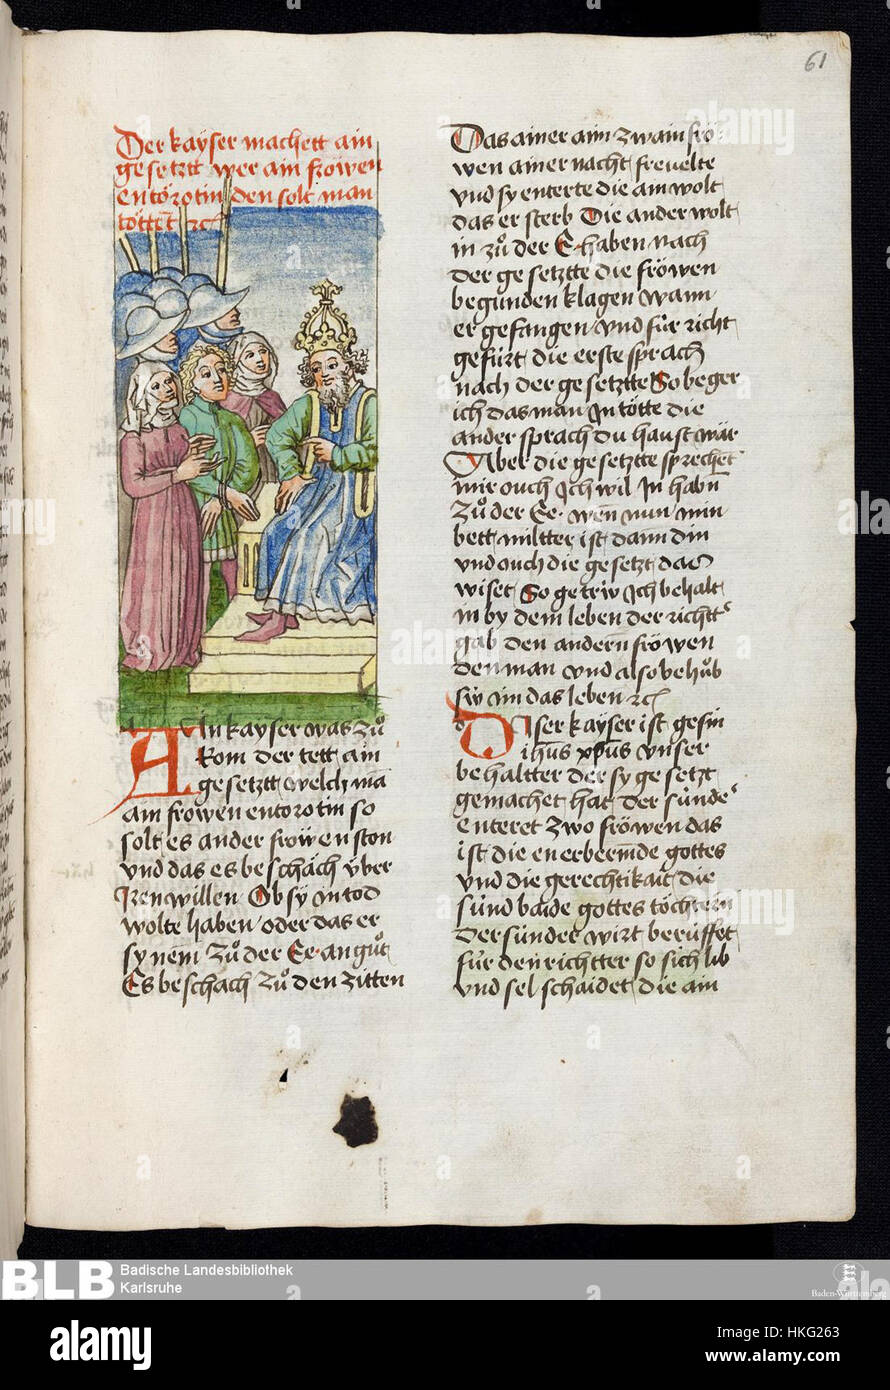 61
Der kaÿser machett ain
gesetztt wer ain fröwen
entörotin den solt man
töttett rc
AIn kayser was zů
Rom der tett ain
gesetztt welch mā
ain fröwen entorotin so
solt es ander fröẅen ston
vnd das es beschäch v̈ber
Iren willen Ob sÿ in tod
wolte haben oder das er
sy nem zů der Ee an gůt
Es beschach zů den zitten
Das ainer aim zwain frö
wen ainer nacht frevelte
vnd sy enterte die ain wolt
das er sterb Die ander wolt
in zů der E haben nach
der gesetztte die fröwen
begunden klagen wann
er gefangen vnd für richt
gefürt die erste sprach
nach der gesetztte So beger
ich das man In tötte die
ander sprach du haust wär
Aber die gesetztte sprechent
mir ouch Ich wil In habn
zů der Ee wen nun min
bett miltter ist dann din
vnd ouch die gesetzt das
wiset So getriw Ich behalt
in by dem leben der richtt
gab den andern fröwen
den man vnd also behůb
sÿ im das leben rc
DIser kayser ist gesin
ihus xpus vnser
behaltter der sy gesetzt
gemachet hat Der sünder
enteret zwo fröwen das
ist die enerbermde gottes
vnd die gerechtikait die
sünd baide gottes töchtern
Der sünder wirt berüffet
für den richtter so sich lib
vnd sel schaidet die ain
BLB
Badische Landesbibliothek
Karlsruhe
Baden-Württemberg
alamy
alamy
Image ID: HKG263
www.alamy.com